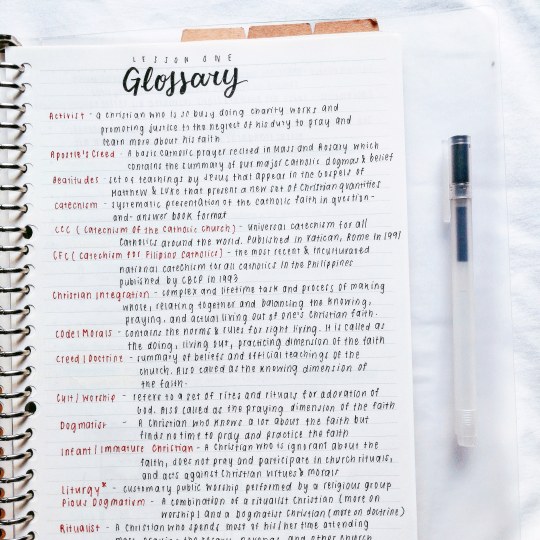 LESSON ONE
Glossary
Activist - a christian who is so busy doing charity works and
promoting justice to the neglect of his duty to pray and
learn more about his faith
Apostle's Creed - A basic catholic prayer recited in Mass and Rosary which
contains the summary of our major Catholic dogmas & belief
Beatitudes - set of teachings by Jesus that appear in the Gospels of
Matthew & Luke that present a new set of Christian quantities
Catechism - systematic presentation of the catholic faith in question-
and-answer book format
CCC (Catechism of the Catholic Church) - universal catechism for all
Catholics around the world. Published in Vatican, Rome in 1991
CFC (Catechism for Filipino Catholics) - the most recent & inculturated
national catechism for all catholics in the Philippines
published by CBCP in 1993
Christian Integration - complex and lifetime task and process of making
whole, relating together and balancing the knowing,
praying, and actual living out of one's Christian faith.
Code/Morals - contains the norms & rules for right living. It is called as
the doing, living out, practicing dimension of the faith
Creed/Doctrine - summary of beliefs and official teachings of the
church. Also called as the knowing dimension of
the faith.
Cult/Worship - refers to a set of rites and rituals for adoration of
God. Also called as the praying dimension of the faith
Dogmatist - A Christian who knows a lot about the faith but
finds no time to pray and practice the faith
Infant/Immature Christian - A Christian who is ignorant about the
faith, does not pray and participate in church rituals,
and acts against Christian virtues & morals
Liturgy* - customary public worship performed by a religious group
Pious Dogmatism - A combination of a ritualist Christian (more on
worship) and a Dogmatist Christian (more on doctrine)
Ritualist - A Christian who spends most of his/her time attending
mass, praying the rosary, novenas, and other church